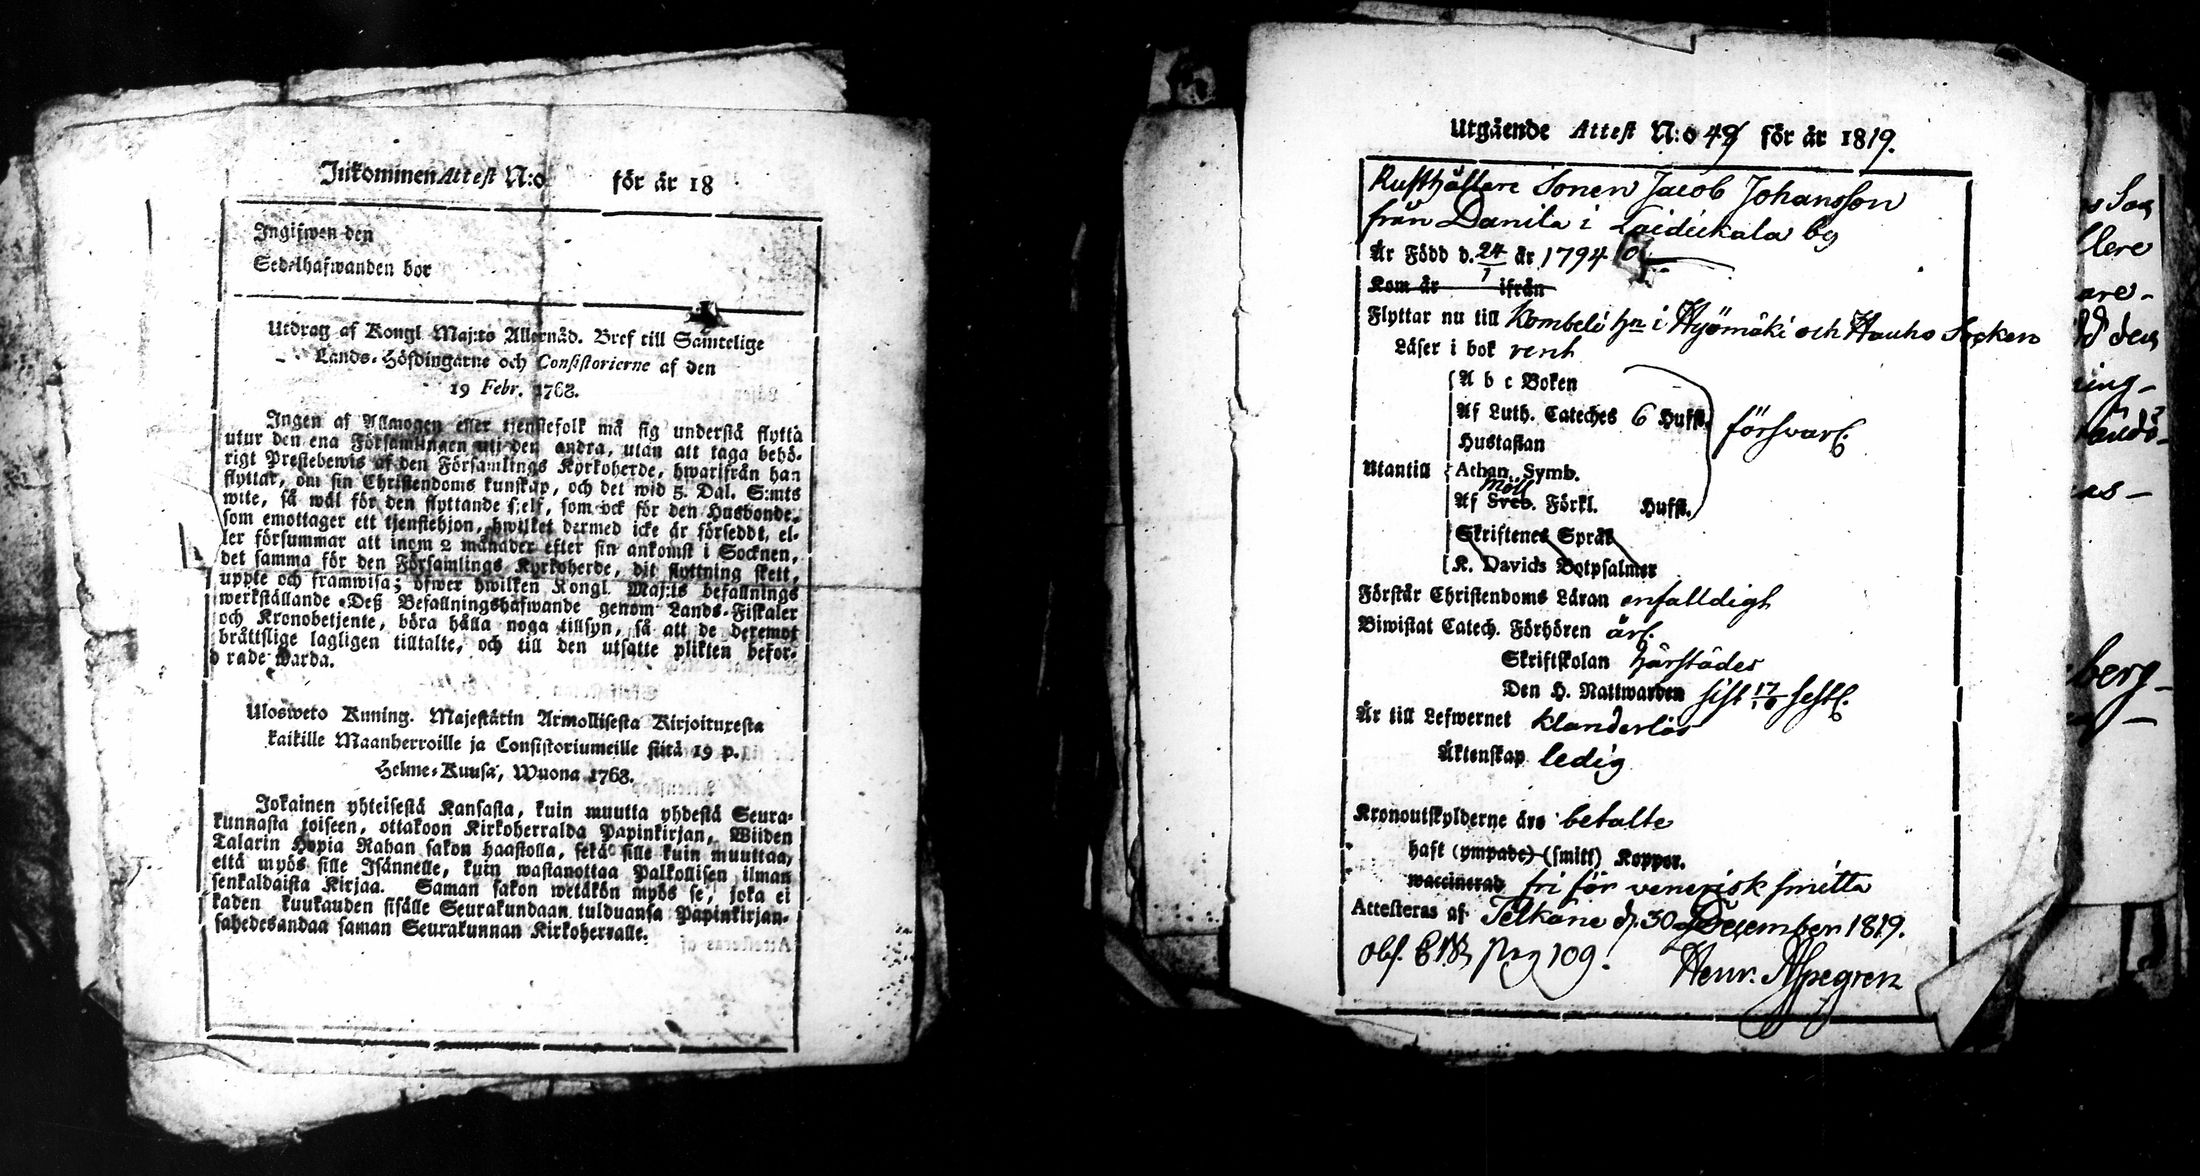 Inkommen Attest N:o för år 18
Ingifwen den
Sedelhafwanden bor
Utdrag af Kongl Maj:ts Allernåd. Bref till Samtelige
Lands-Höfdingarne och Consistorierne af den
19 Febr. 1768.
Ingen af Allmogen eller tjenstefolk må sig understå flytta
utur den ena Församlingen uti den andra, utan att taga behö-
rigt Prestebewis af den Församlings Kyrkoherde, hwarifrån han
flyttar, om sin Christendoms kunskap, och det wid 5. Dal. S:mts
wite, så wäl för den flyttande sjelf, som ock för den Husbonde,
som emottager ett tjenstehjon, hwilket dermed icke är försedt, el-
ler försummar att inom 2 månader efter sin ankomst i Socknen,
det samma för den Församlings Kyrkoherde, dit flyttning skett,
uppte och framwisa; öfwer hwilken Kongl. Maj:ts befallnings
werkställande Deß Befallningshafwande genom Lands-Fiskaler
och Kronobetjente, böra hålla noga tillsyn, så att de deremot
bråttslige lagligen tilltalte, och till den utsatte plikten befor-
drade warda.
Ulosweto Kuning. Majestätin Armollisesta Kirjoituxesta
kaikille Maanherroille ja Consistoriumeille siitä 19 p.
Helme-Kuusa, Wuona 1768.
Jokainen yhteisestä Kansasta, kuin muutta yhdestä Seura-
kunnasta toiseen, ottakoon Kirkoherralda Papinkirjan, Wiiden
Talarin Hopia Rahan sakon haastolla, sekä sille kuin muuttaa,
että myös sille Isännelle, kuin wastanottaa Palkollisen ilman
senkaldaista Kirjaa. Saman sakon wetäkön myös se, joka ei
kaden kuukauden sisälle Seurakundaan tulduansa Papinkirjan-
sahedesandaa saman Seurakunnan Kirkoherralle.
Utgående Attest N:o 49 för år 1819.
Rusthållare Sonen Jacob Johansson
från Danila i Laidiekala by
Är Född d. 24/1 år 1794
Kom år ifrån
Flyttar nu till Kombeli hn i Hyömäki och Hauho Socken
Läser i bok rent
A b c Boken
Af Luth. Cateches 6 Hufst. försvarl:
Hustaflan
Utantill Athan. Symb.
möll
Af Sveb. Förkl. Hufst.
Skriftenes Språk
K. Davids Botpsalmer
Förstår Christendoms Läran enfalldigt
Biwistat Catech. Förhören årl.
Skriftskolan härstädes
Den H. Nattwarden sist 17/10 sestl:
Är till Lefwernet klanderlös
Äktenskap ledig
Kronoutskylderne äro betalte
haft (ympade) (smitt) Koppor.
waccinerad fri för venerisk smitta
Attesteras af Pelkäne d. 30 December 1819.
obs. pag 109. Henr. Alpegren